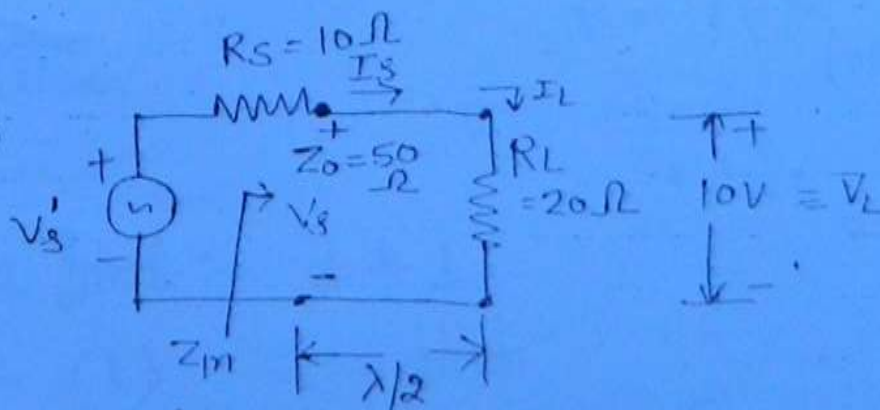 RS = 10 Ω
IS
↓ IL
+
+
Z0 = 50 Ω
RL = 20 Ω
+
10V = VL
-
VS'
VS
-
-
Zin
λ/2